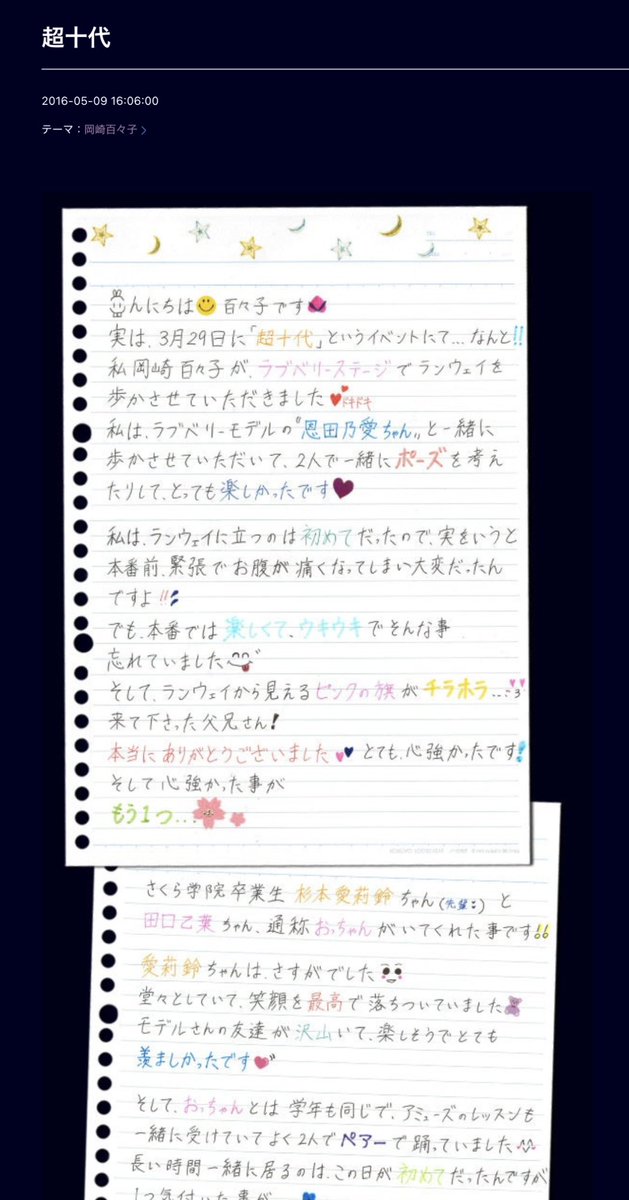 超十代
2016-05-09 16:06:00
テーマ：岡崎百々子
んにちは 百々子です
実は、3月29日に「超十代」というイベントにて…なんと!!
私岡崎百々子が、ラブベリーステージでランウェイを
歩かさせていただきました ドキドキ
私は、ラブベリーモデルの〝恩田乃愛ちゃん〟と一緒に
歩かさせていただいて、2人で一緒にポーズを考え
たりして、とっても楽しかったです
私は、ランウェイに立つのは初めてだったので、実をいうと
本番前、緊張でお腹が痛くなってしまい大変だったん
ですよ!!
でも、本番では楽しくて、ウキウキでそんな事
忘れていました
そして、ランウェイから見えるピンクの旗がチラホラ…
来て下さった父兄さん!
本当にありがとうございました とても、心強かったです!
そして心強かった事が
もう1つ…
さくら学院卒業生 杉本愛莉鈴ちゃん(先輩) と
田口乙葉ちゃん、通称おっちゃんがいてくれた事です!!
愛莉鈴ちゃんは、さすがでした
堂々としていて、笑顔を最高で落ちついていました
モデルさんの友達が沢山いて、楽しそうでとても
羨ましかったです
そして、おっちゃんとは学年も同じで、アミューズのレッスンも
一緒に受けていてよく2人でペアーで踊っていました
長い時間一緒に居るのは、この日が初めてだったんですが
1つ気付いた事が